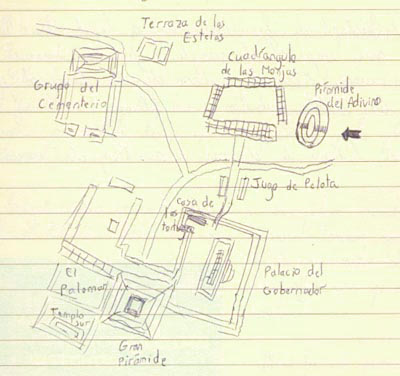 Terraza de las
Estelas
Cuadrángulo
de las Monjas
Pirámide
del Adivino
Grupo del
Cementerio
Jugo de Pelota
Casa de
las
tortugas
Palacio del
Gobernador
El
Palomar
Templo
sur
Gran
Pirámide